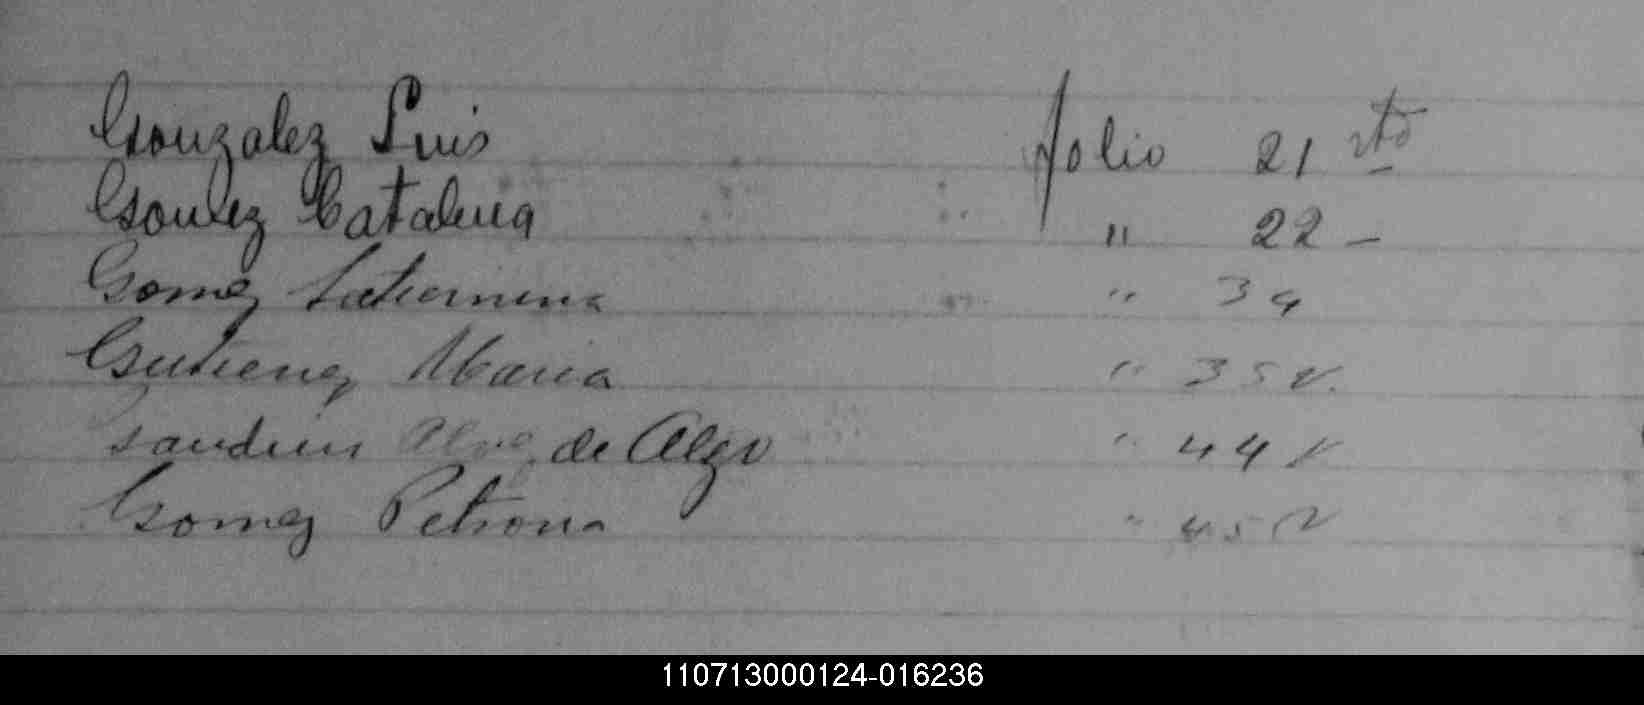 Gonzalez Luis folio 21 vto
Gomez Catalina " 22 -
Gomez Saturnina " 34
Gutierrez Maria " 35 v.
de Algo " 44 v
Gomez Petrona " 45 v
110713000124-016236